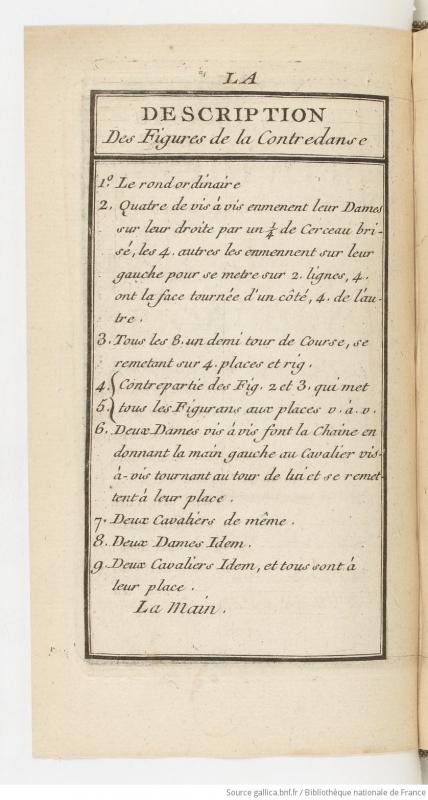 LA
DESCRIPTION
Des Figures de la Contredanse
1º. Le rond ordinaire
2. Quatre de vis à vis enmenent leur Dames
sur leur droite par un ¼ de Cerceau bri-
sé, les 4. autres les enmennent sur leur
gauche pour se metre sur 2. lignes, 4.
ont la face tournée d'un côté, 4. de l'au-
tre.
3. Tous les 8. un demi tour de Course, se
remetant sur 4. places et rig.
4. Contrepartie des Fig. 2 et 3. qui met
5. tous les Figurans aux places v. à. v.
6. Deux Dames vis à vis font la Chaine en
donnant la main gauche au Cavalier vis-
à-vis tournant au tour de lui et se remet-
tent à leur place.
7. Deux Cavaliers de même.
8. Deux Dames Idem.
9. Deux Cavaliers Idem, et tous sont à
leur place.
La Main.
Source gallica.bnf.fr / Bibliothèque nationale de France